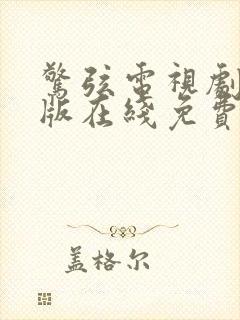 驚弦電視劇
版在綫免費
盖格尔